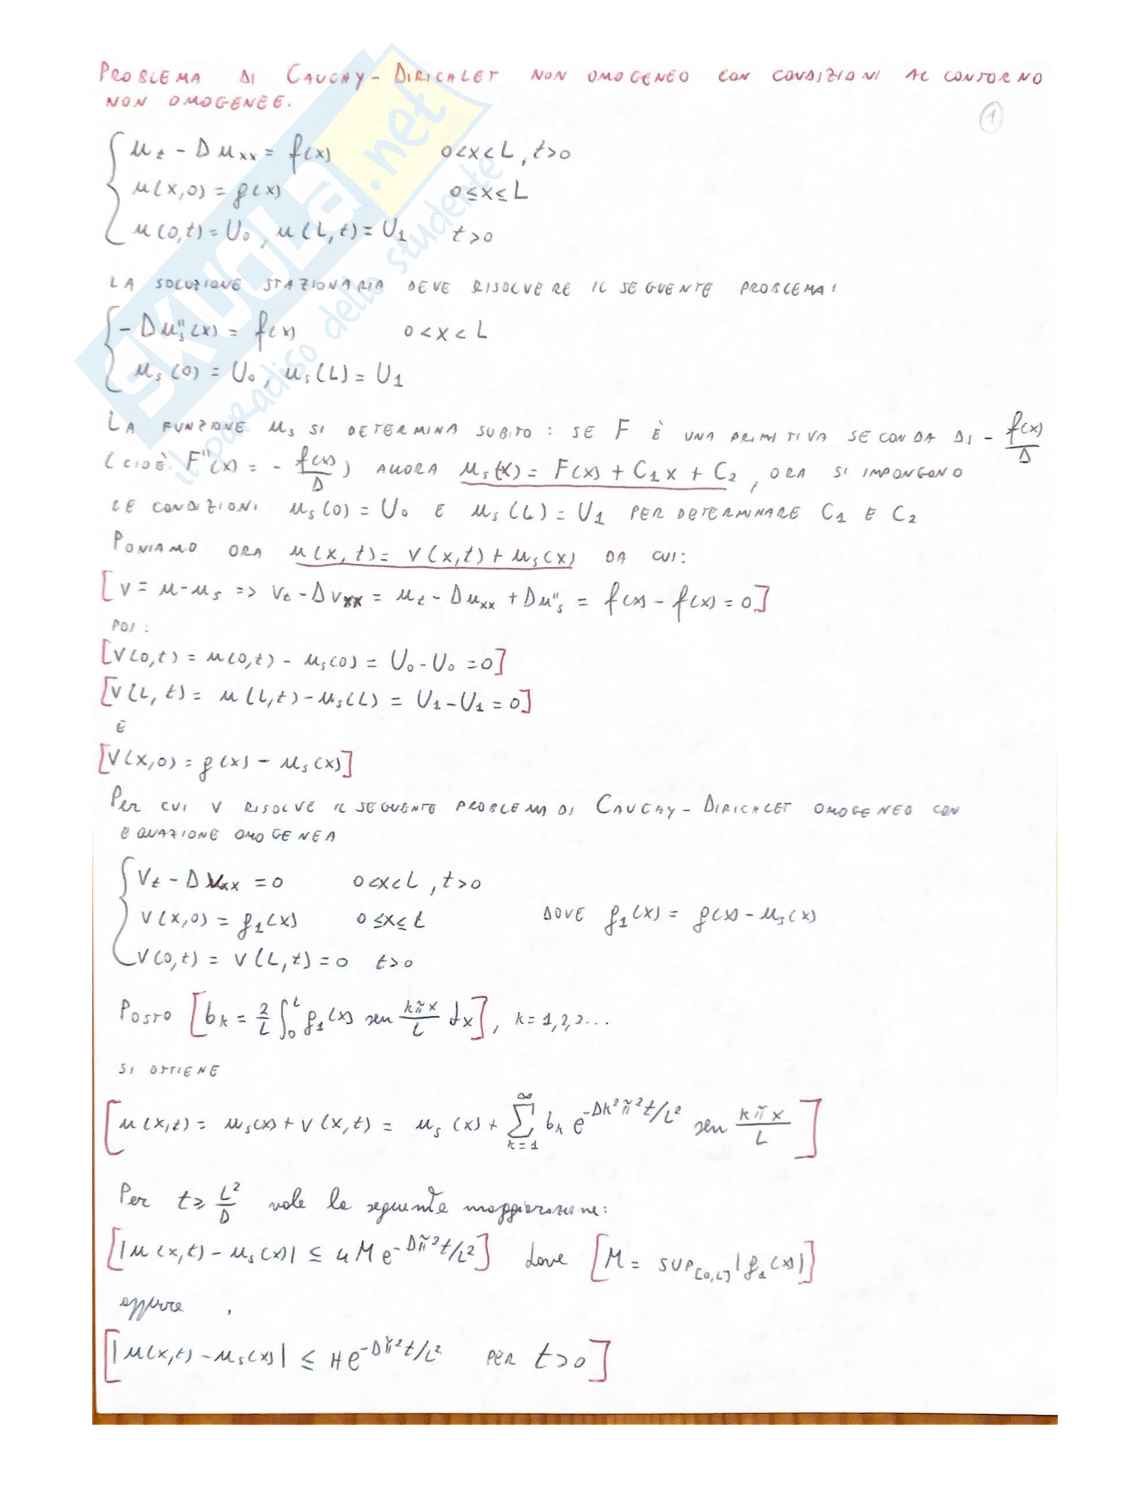 PROBLEMA DI CAUCHY-DIRICHLET NON OMOGENEO CON CONDIZIONI AL CONTORNO
NON OMOGENEE.
1
{ u_t - D u_xx = f(x) 0<x<L, t>0
u(x,0) = g(x) 0≤x≤L
u(0,t) = U_0, u(L,t) = U_1 t>0
LA SOLUZIONE STAZIONARIA DEVE RISOLVERE IL SEGUENTE PROBLEMA:
{ -D u_s''(x) = f(x) 0<x<L
u_s(0) = U_0, u_s(L) = U_1
LA FUNZIONE u_s SI DETERMINA SUBITO: SE F È UNA PRIMITIVA SECONDA DI - f(x)/D
(CIOÈ F''(x) = - f(x)/D) ALLORA u_s(x) = F(x) + C_1 x + C_2, ORA SI IMPONGONO
LE CONDIZIONI u_s(0) = U_0 E u_s(L) = U_1 PER DETERMINARE C_1 E C_2
PONIAMO ORA u(x,t) = v(x,t) + u_s(x) DA CUI:
[v = u-u_s => v_t - D v_xx = u_t - D u_xx + D u_s'' = f(x) - f(x) = 0]
POI:
[v(0,t) = u(0,t) - u_s(0) = U_0 - U_0 = 0]
[v(L,t) = u(L,t) - u_s(L) = U_1 - U_1 = 0]
E
[v(x,0) = g(x) - u_s(x)]
PER CUI V RISOLVE IL SEGUENTE PROBLEMA DI CAUCHY-DIRICHLET OMOGENEO CON
EQUAZIONE OMOGENEA
{ v_t - D v_xx = 0 0<x<L, t>0
v(x,0) = g_1(x) 0≤x≤L DOVE g_1(x) = g(x) - u_s(x)
v(0,t) = v(L,t) = 0 t>0
POSTO [b_k = 2/L ∫_0^L g_1(x) sen kπx/L dx], k = 1,2,3...
SI OTTIENE
[u(x,t) = u_s(x) + v(x,t) = u_s(x) + Σ_{k=1}^∞ b_k e^{-Dk²π²t/L²} sen kπx/L]
Per t ≥ L²/D vale la seguente maggiorazione:
[|u(x,t) - u_s(x)| ≤ 4 M e^{-Dπ²t/L²}] dove [M = SUP_[0,L] |g_1(x)|]
oppure
[|u(x,t) - u_s(x)| ≤ H e^{-Dπ²t/L²} PER t>0]
SKUOLA.net
il paradiso dello studente